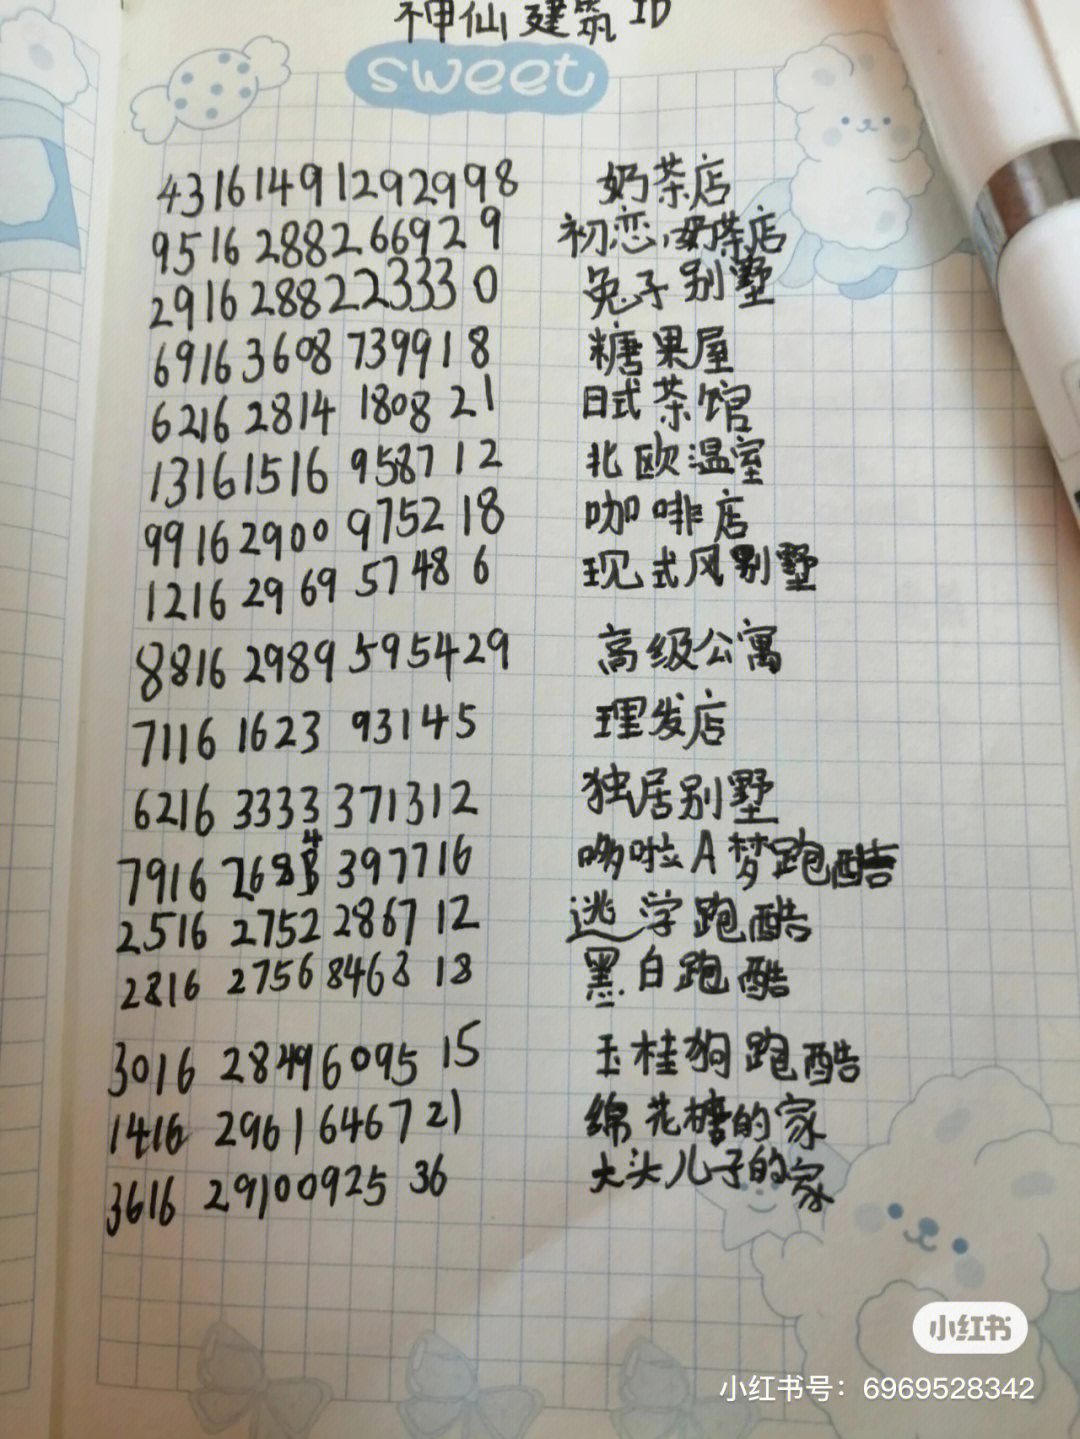 神仙建筑ID
sweet
43161491292998 奶茶店
9516 2882 66929 初恋奶茶店
2916 288223330 兔子别墅
6916 3608 739918 糖果屋
6216 2814 1808 21 日式茶馆
13161516 9587 12 北欧温室
9916 2900 9752 18 咖啡店
1216 29 69 57 48 6 现式风别墅
8816 2989 595429 高级公寓
7116 1623 93145 理发店
6216 3333 371312 独居别墅
7916 2684 397716 哆啦A梦跑酷
2516 2752 2867 12 逃学跑酷
2816 2756 8463 18 黑白跑酷
3016 28496095 15 玉桂狗跑酷
1416 2961 6467 21 绵花糖的家
3616 29100925 36 大头儿子的家
小红书
小红书号：6969528342